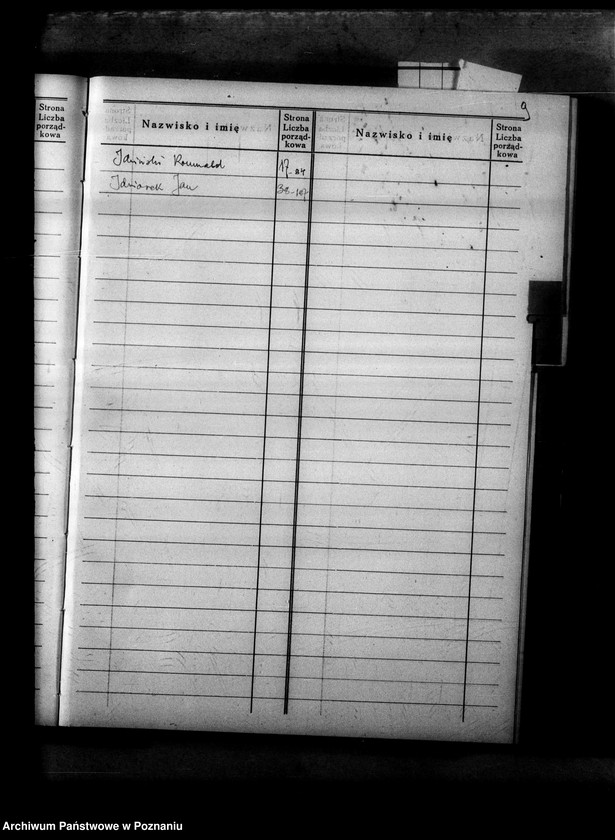 9
Strona
Liczba
porząd-
kowa
Nazwisko i imię
Strona
Liczba
porząd-
kowa
Nazwisko i imię
Strona
Liczba
porząd-
kowa
Romuald 17-
Jan 38-107
Archiwum Państwowe w Poznaniu